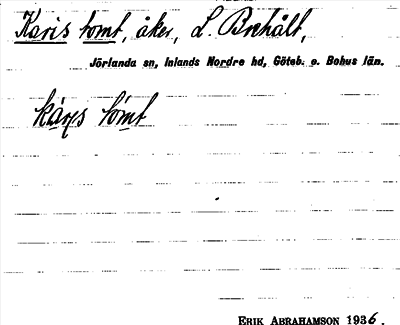 Karis tomt, åker, L. Brehålt,
Jörlanda sn, Inlands Nordre hd, Göteb. o. Bohus län.
tómt
ERIK ABRAHAMSON 1936.